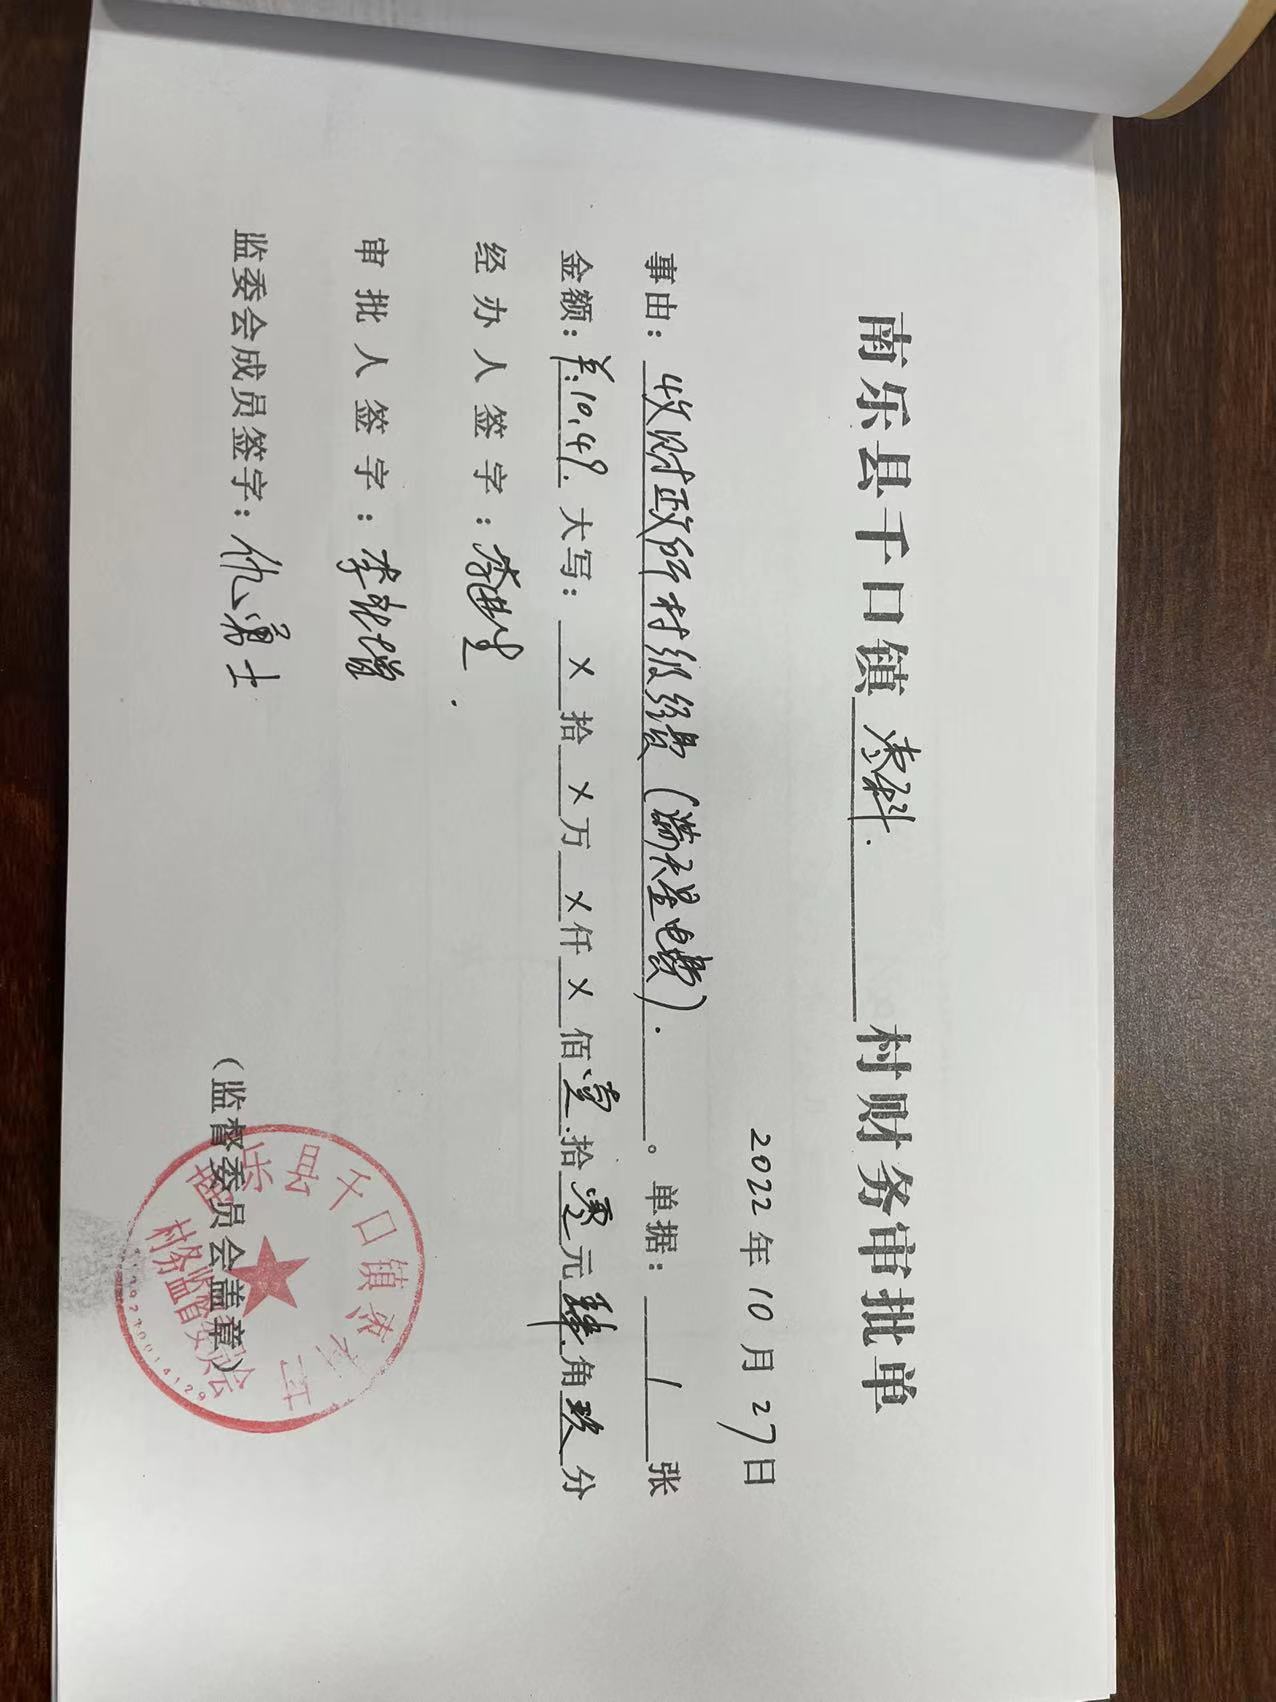 南乐县千口镇 村财务审批单
2022年10月27日
事由：收财政所村级经费（满天星电费）。单据：1张
金额：羊:10.49 大写：×拾×万×仟×佰壹拾零元肆角玖分
经办人签字：李
审批人签字：李乾增
监委会成员签字：仇勇士
（监督委员会盖章）
南乐县千口镇 村
村务监督委员会